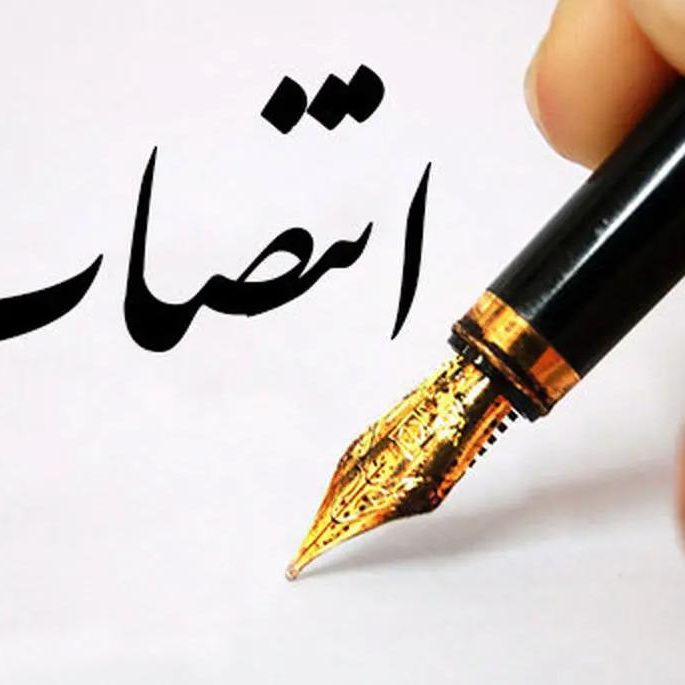 انتصار